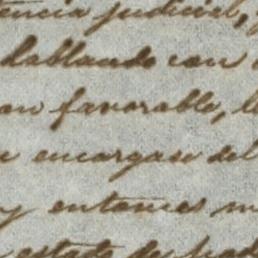 tencia judicial,
hablando con
favorable, l
encargase del
y entonces m
estado de